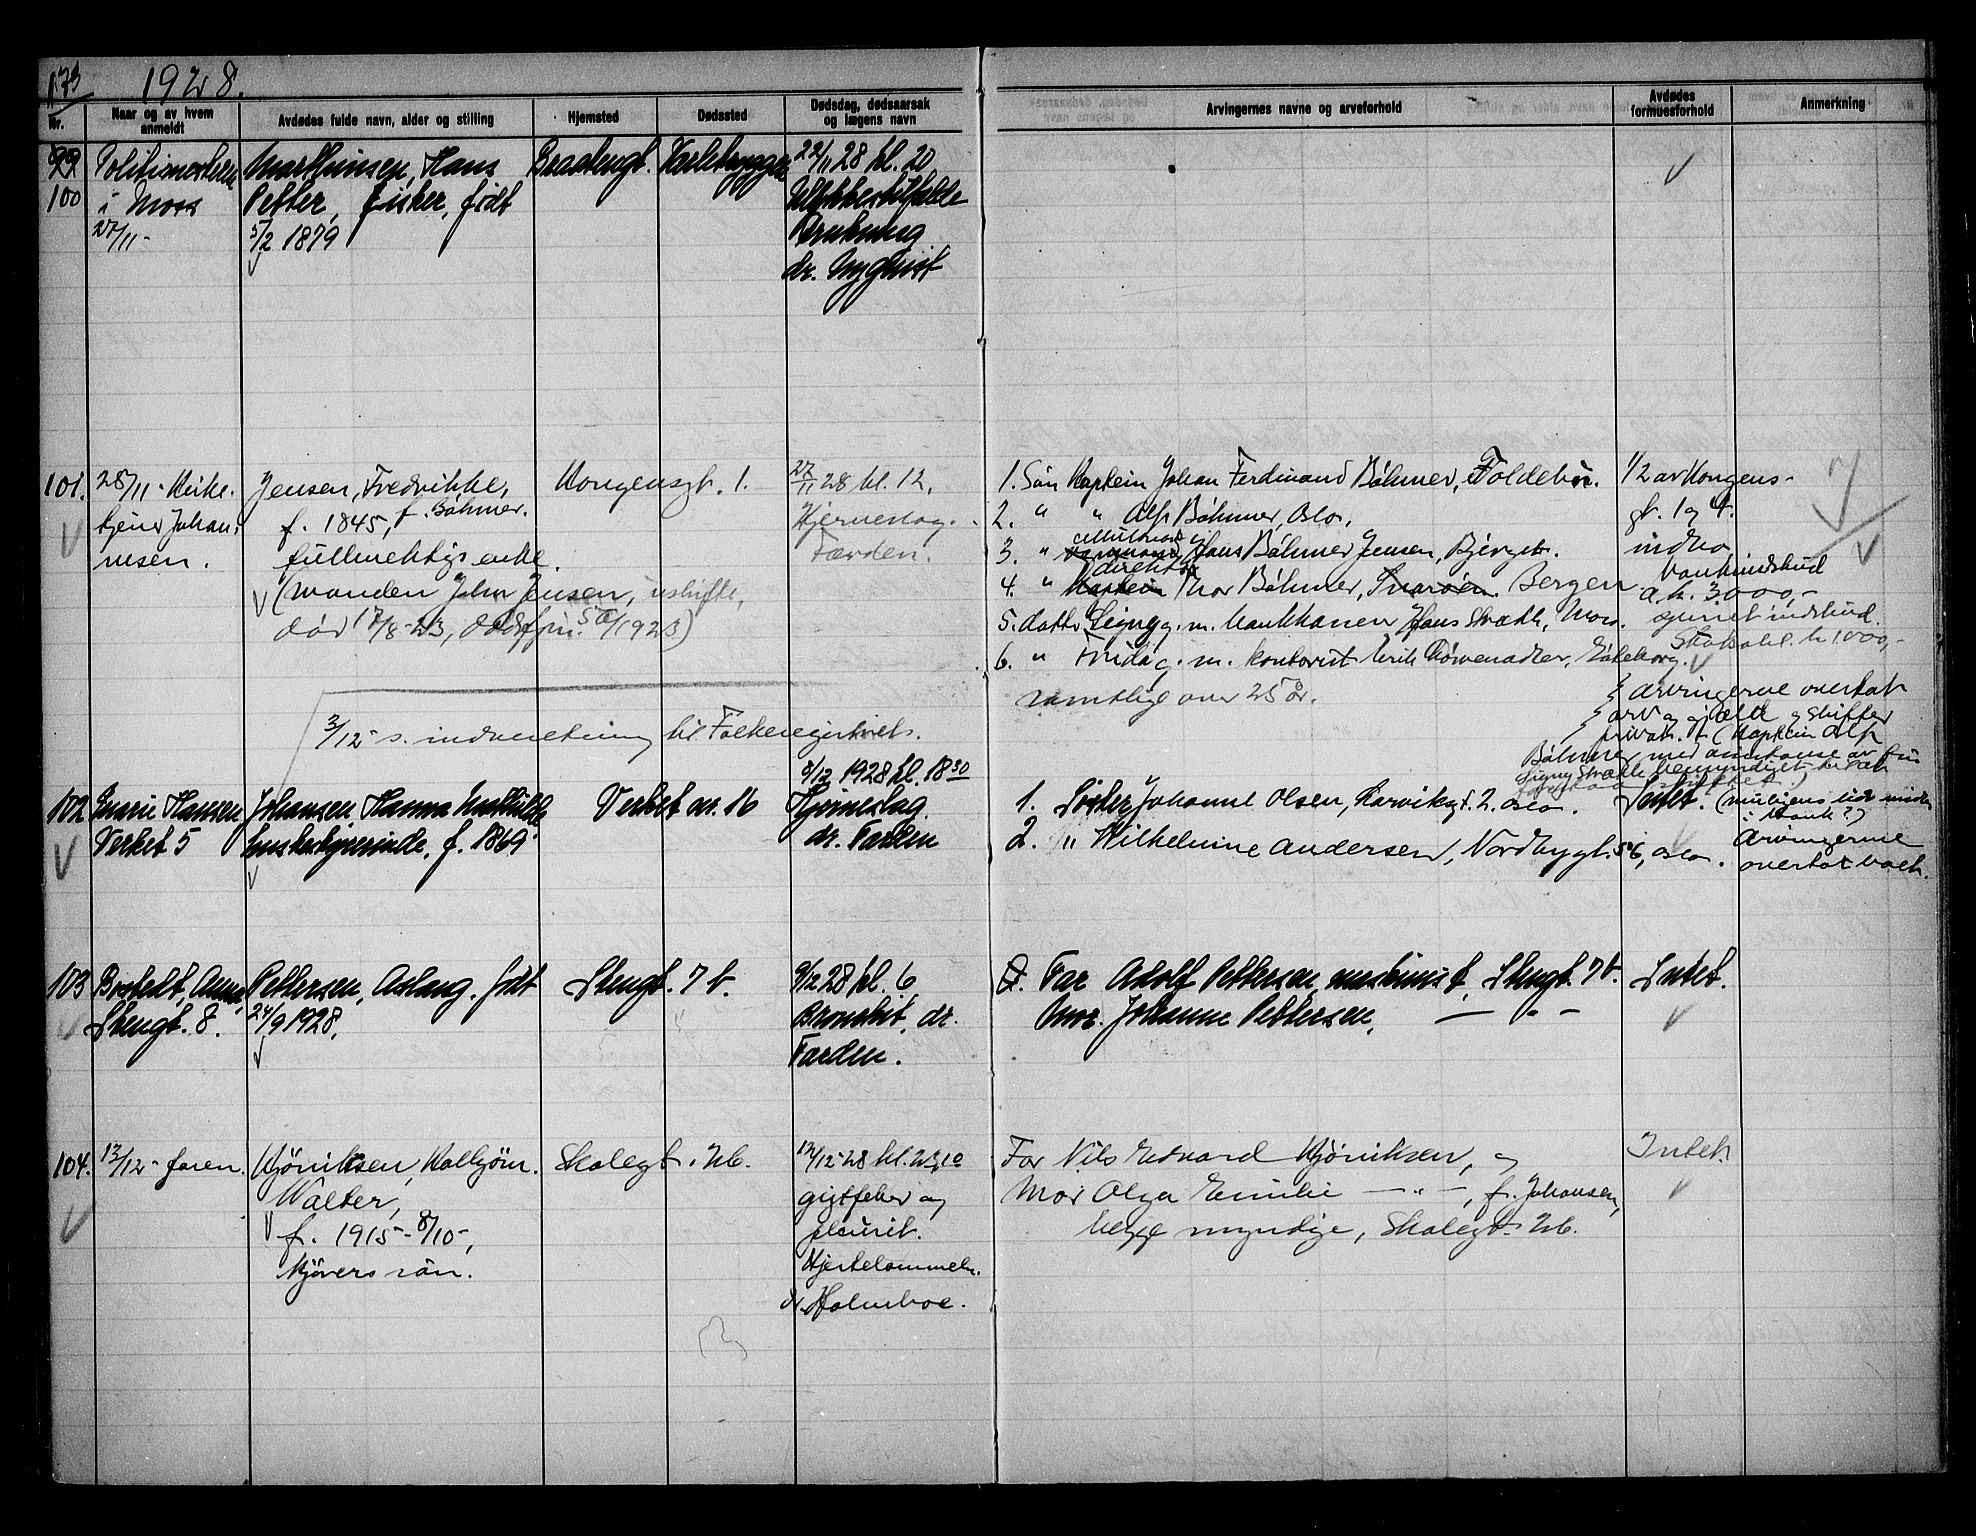 173 1928.
Nr.
Naar og av hvem anmeldt
Avdødes fulde navn, alder og stilling
Hjemsted
Dødssted
Dødsdag, dødsaarsak og lægens navn
Arvingernes navne og arveforhold
Avdødes formuesforhold
Anmerkning
99
100
Politimesteren
i Moss
27/11-
Marthinsen, Hans
Petter, fisker, født
5/2 1879
Braatengt.
22/11 28 kl. 20
Ulykkestilfælde
Drukning
dr. Nyquist
101.
28/11 - Kirke-
tjener Johan-
nesen.
Jensen, Fredrikke,
f. 1845, f. Bøhmer.
fullmektigs enke.
(manden John Jensen, uskifte,
død 17/8-23, /1923)
Kongensgt. 1.
27/11 28 kl. 12.
Hjerneslag.
Færden.
1. Søn Kaptein Johan Ferdinand Bøhmer, Foldebo.
2. " " Alf Bøhmer, Oslo.
3. " Hans Bøhmer Jensen,
4. " direktør Kaptein Thor Bøhmer, Snarøen. Bergen
5. datt. Signy g. m. Hans Stræthe, Moss.
6. " Frida g. m. kontorist Erik
samtlige over 25 år.
1/2 av Kongens-
gt. 1 og 4.
indbo
bankindskud
a. k. 3000,-
1000,-
arvingerne overtat
arv og gjæld og skifter
privat. (Kaptein Alf
Bøhmer med
3/12 - s. indberetning til Folkeregistret.
102
Marie Hansen
Verket 5
Johansen Hanna Mathilde
husbestyrerinde, f. 1869
Verket nr. 16
8/12 1928 kl. 18 30
Hjerneslag.
dr. Farden
1. Søster Johanne Olsen, Larviksgt. 2. Oslo.
2. " Wilhelmine Andersen, Nordbygt. 56, Oslo.
Intet.
(muligens litt
i bank?)
Arvingerne
overtat boet.
103
Anna,
Stengt. 8.
Pettersen, Aslaug. født
24/9 1928.
Stengt. 7 b.
9/12 28 kl. 6
Bronchit, dr.
Farden.
Far Adolf Pettersen maskinist, Stengt. 7 b.
Mor. Johanne Pettersen, — " —
Intet.
104.
13/12 - faren.
Kjøniksen, Kolbjørn
Walter,
f. 1915 - 8/10 -,
kjørers søn.
Skolegt. 26.
12/12-28 kl. 23,10
gigtfeber og
pleurit.
Hjertelammelse.
dr. Holmboe.
Far Nils Edvard Kjøniksen, og
Mor Olga Emilie — " —, f. Johansen,
begge myndige, Skolegt. 26.
Intet.